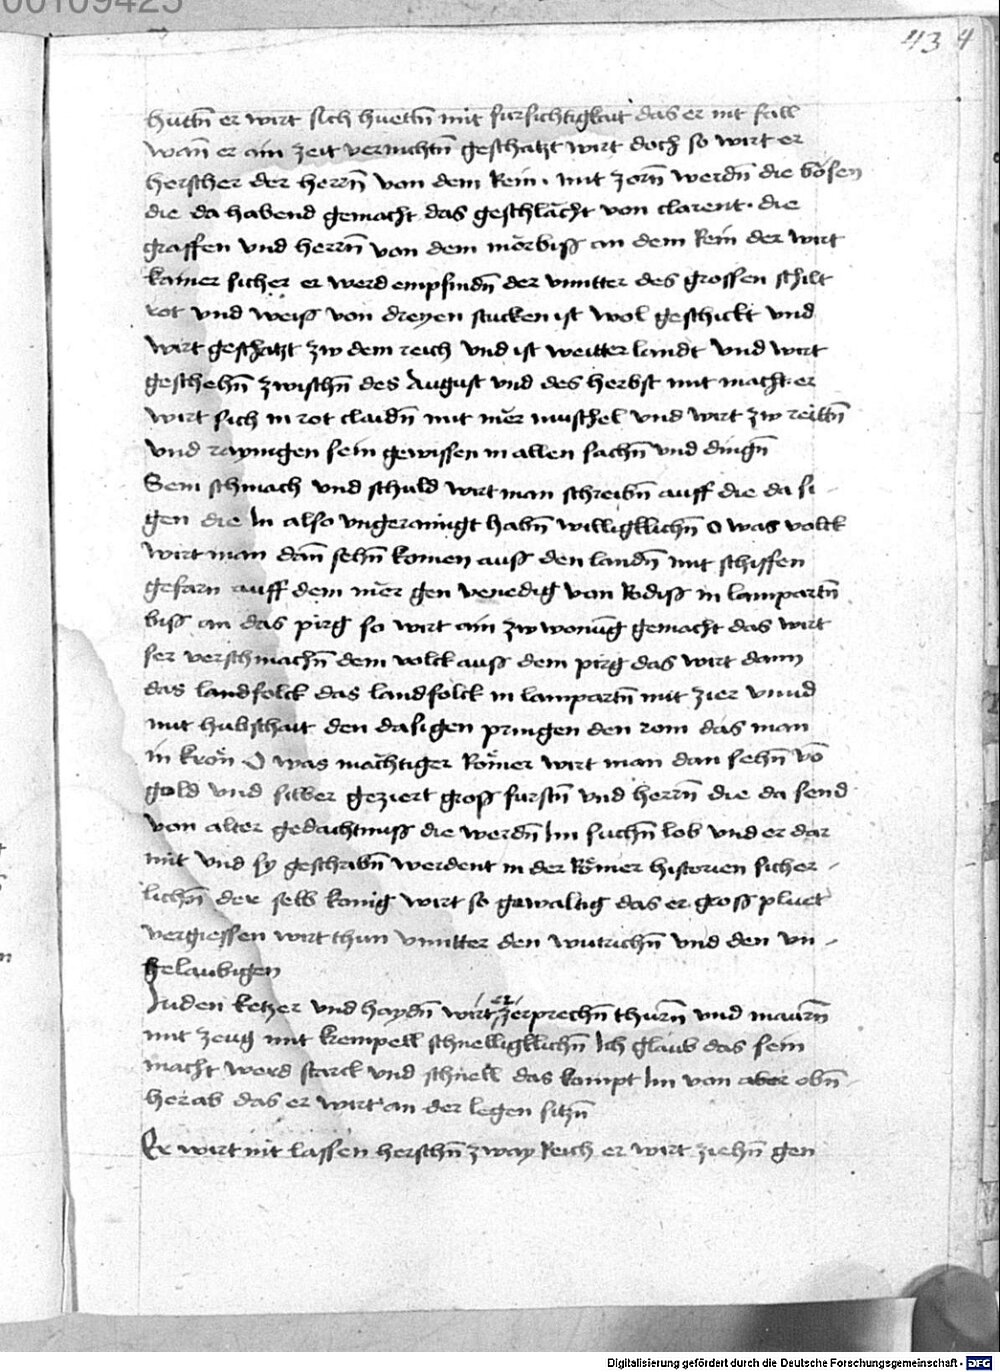 00109425
43 4
huttn̄ er wirt sich huettn̄ mit fursichtigkait das er nit fall
wan̄ er ain zeit vernichtn̄ geschatzt wirt doch so wirt er
herscher der herrn̄ von dem Rein · mit zorn̄ werdn̄ die bosen
die da habend gemacht das geschlächt von clarent · die
graffen vnd herrn̄ von dem mörbiss an dem Rein der wirt
kainer sicher er werd empfindn̄ der vnitter des grossen schilt
rot vnd weiss von dreyen stucken ist wol geschickt vnd
wirt geschatzt zw dem reich vnd ist weitter landt vnd wirt
geschehn̄ zwischn̄ des August vnd des herbst mit macht · er
wirt sich in rot claidn̄ mit mer muschel vnd wirt zw reittn̄
vnd raynigen sein gewissen in allen sachn̄ vnd dingn̄
Sein schmach vnd schuld wirt man schreibn̄ auff die da si -
gen die In also vngerainigt habn̄ willigklichn̄ O was volck
wirt man dan̄ sehn̄ komen auss den landn̄ mit schiffen
gefarn auff dem mer gen venedig von Rodiss in lampartn̄
biss an das pirg so wirt ain zw wonūg gemacht das wirt
ser verschmachn̄ dem volck auss dem pirg das wirt dann
das landfolck das landfolck in lampartn̄ mit zier vnnd
mit hubschait den dasigen pringen den rom das man
in krön̄ O was mächtiger Römer wirt man dan sehn̄ vō
gold vnd silber geziert gross furstn̄ vnd herrn̄ die da send
von alter gedachtnuss die werdn̄ Im suchn̄ lob vnd er dar
mit vnd sy geschribn̄ werdent in der Römer historien sicher -
lichn̄ der selb konig wirt so gewaltig das er gross pluet
vergiessen wirt thun vnitter den wutrichn̄ vnd den vn -
gelaubigen
Iuden ketzer vnd haydn̄ wirt er zerprechn̄ thurn̄ vnd maurn̄
mit zeug mit krempell schnelligklichn̄ Ich glaub das sein
macht werd starck vnd schnell das kompt Im von aber obn̄ -
herab das er wirt an der legen sitzn̄
Er wirt nit lassen herschn̄ zway Reich er wirt ziehn̄ gen
Digitalisierung gefördert durch die Deutsche Forschungsgemeinschaft - DFG